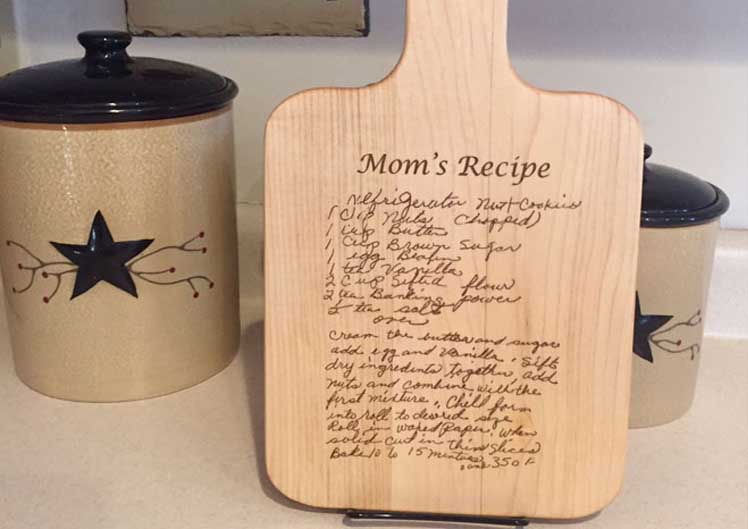 Mom's Recipe
Refrigerator Nut Cookies
1 Cup Nuts Chopped)
1 Cup Butter
1 Cup Brown Sugar
1 egg Beaten
1 tea Vanilla
2 Cup Sifted flour
2 tea Banking power
½ tea salt
over
Cream the butter and sugar
add egg and Vanilla. Sift
dry ingredients together, add
nuts and combine with the
first mixture. Chill form
into roll to desired size
Roll in waxed Paper. When
solid cut in thin slices
Bake 10 to 15 minutes
350